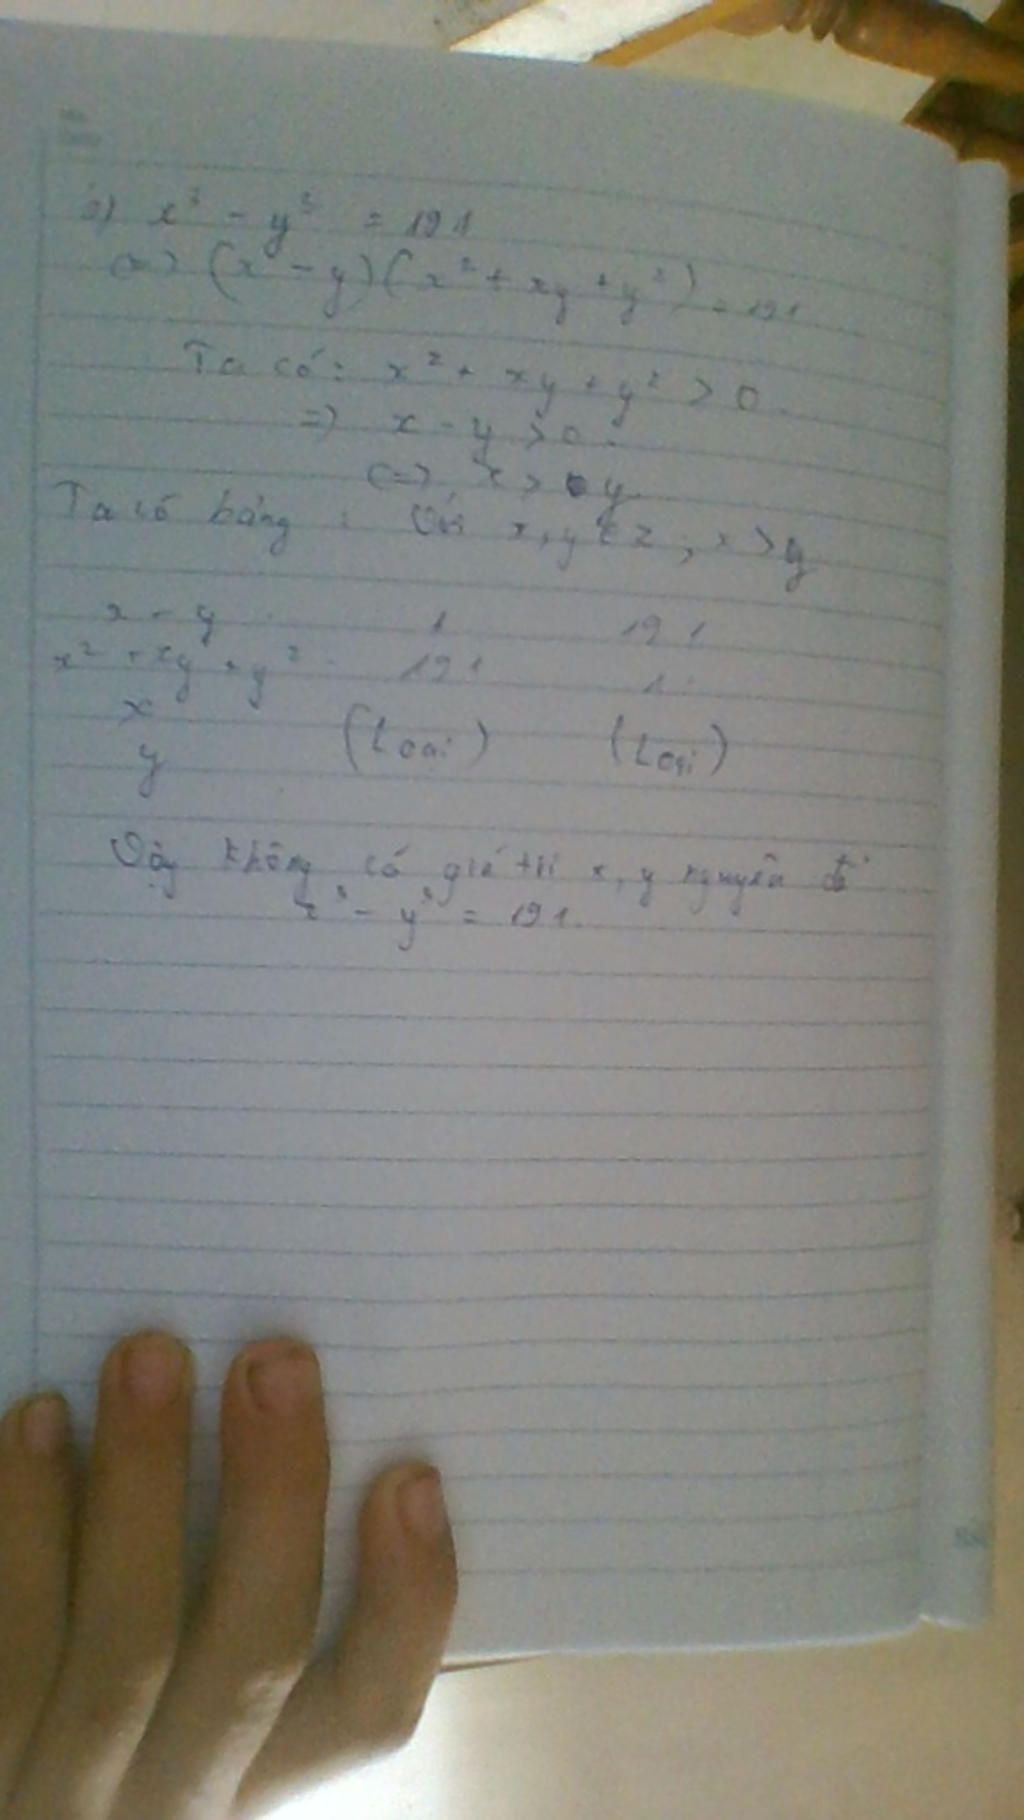 x³ - y³ = 191
<=> (x - y)(x² + xy + y²) = 191
Ta có: x² + xy + y² > 0.
=> x - y > 0.
<=> x > y.
Ta có bảng : Với x, y ∈ Z ; x > y
x - y 1 191
x² + xy + y² 191 1
x
(Loại) (Loại)
y
Vậy không có giá trị x, y nguyên để
x³ - y³ = 191.